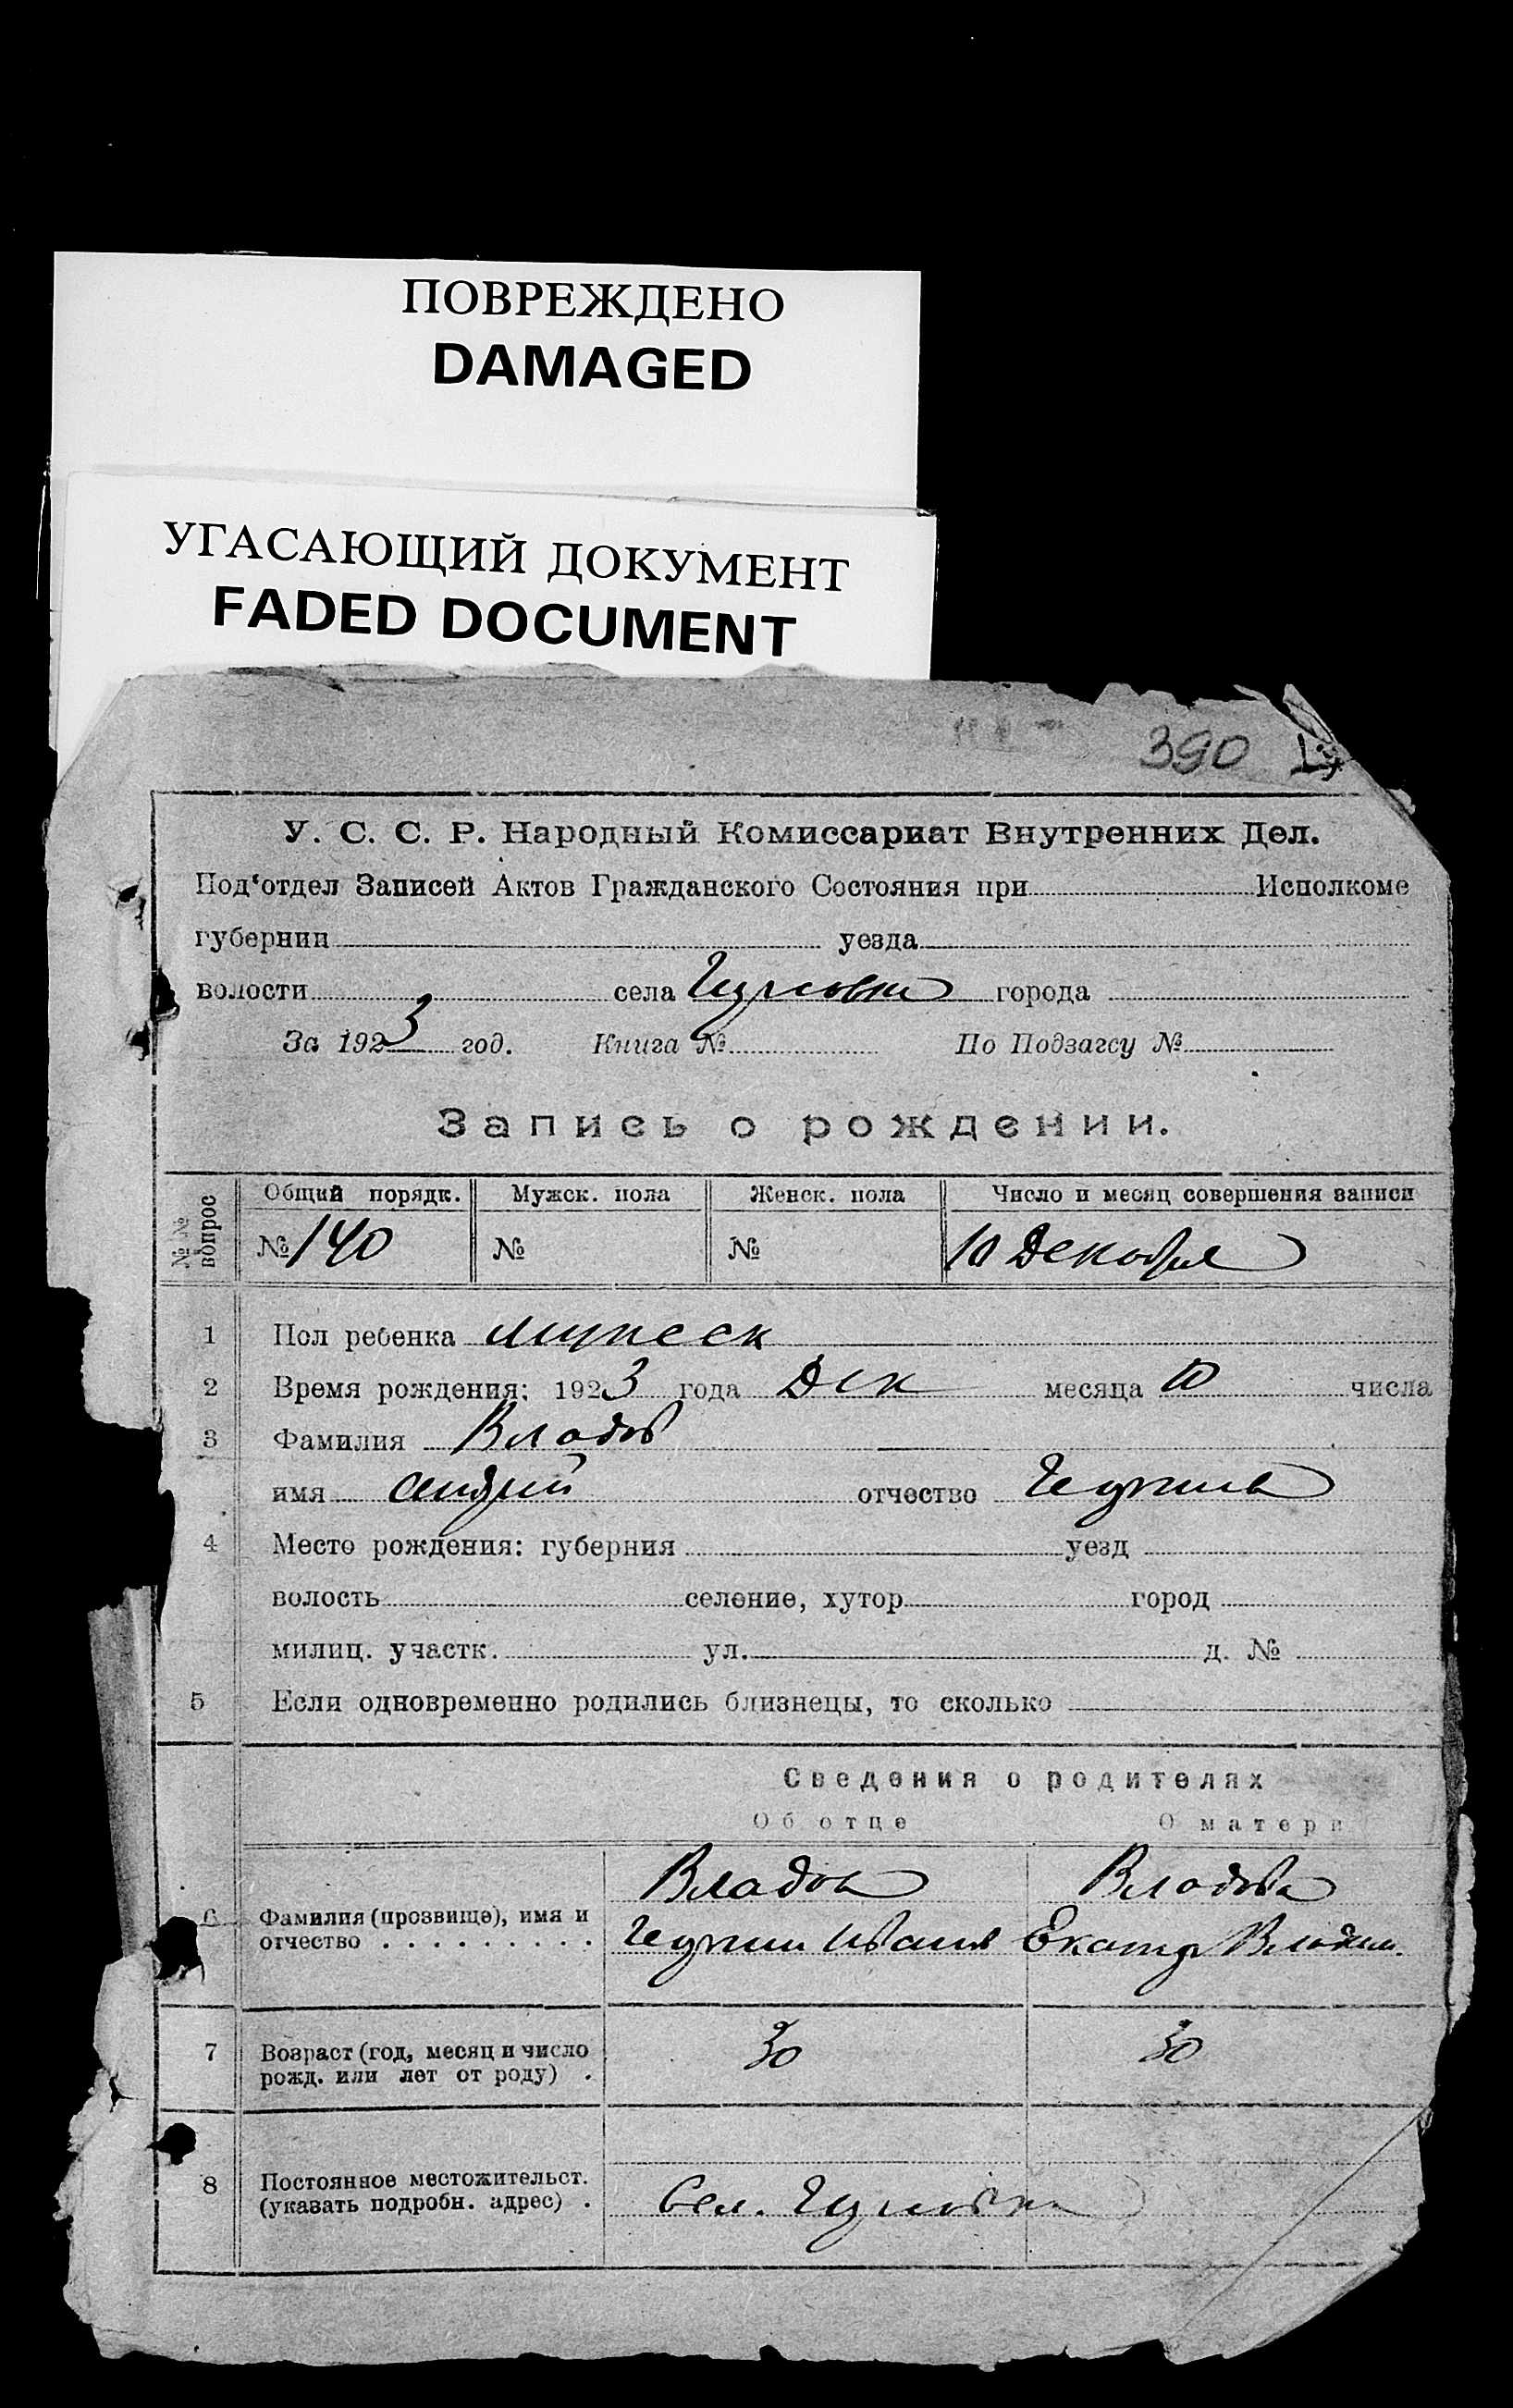 ПОВРЕЖДЕНО
DAMAGED
УГАСАЮЩИЙ ДОКУМЕНТ
FADED DOCUMENT
390
У. С. С. Р. Народный Комиссариат Внутренних Дел.
Под'отдел Записей Актов Гражданского Состояния при Исполкоме
губернии уезда
волости села города
За 1923 год. Книга № По Подзагсу №
Запись о рождении.
№ № вопрос Общий порядк. Мужск. пола Женск. пола Число и месяц совершения записи
№ 140 № № 10 Декабря
1 Пол ребенка мужеск
2 Время рождения: 1923 года Дек месяца 10 числа
3 Фамилия Владов
имя отчество
4 Место рождения: губерния уезд
волость селение, хутор город
милиц. участк. ул. д. №
5 Если одновременно родились близнецы, то сколько
Сведения о родителях
Об отце О матери
Владов Владова
6 Фамилия (прозвище), имя и
отчество Иванов Екатер Владим.
7 Возраст (год, месяц и число
рожд. или лет от роду) 30 30
8 Постоянное местожительст.
(указать подробн. адрес) Сел.